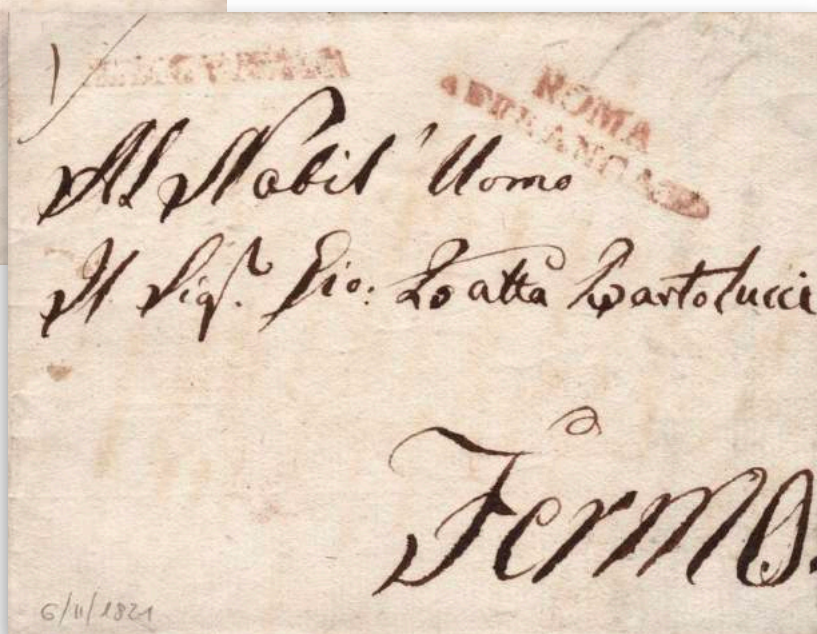 ROMA
AFFRANCATA
Al Nobil' Uomo
Il Sigr. Gio: Batta Bartolucci
Fermo.
6/11/1821